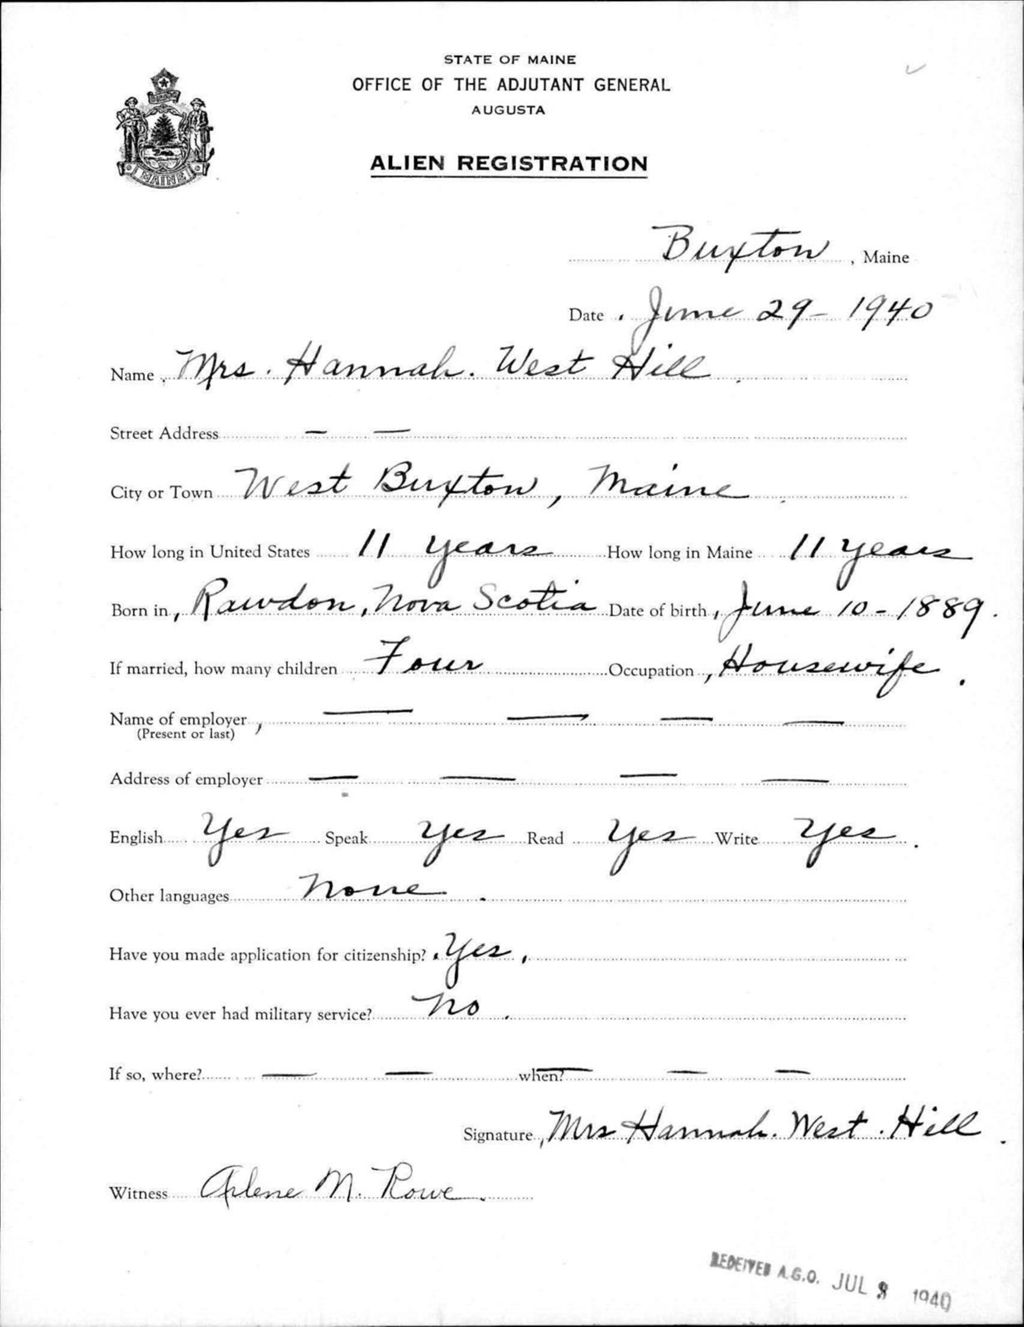 STATE OF MAINE
OFFICE OF THE ADJUTANT GENERAL
AUGUSTA
ALIEN REGISTRATION
MAINE
Buxton, Maine
Date. June 29- 1940
Name, Mrs. Hannah. West Hill
Street Address — —
City or Town West Buxton, Maine
How long in United States 11 years How long in Maine 11 years
Born in, Rawdon, Nova Scotia Date of birth, June 10 - 1889.
If married, how many children Four Occupation, Housewife.
Name of employer, — — — —
(Present or last)
Address of employer — — — —
English Yes Speak Yes Read Yes Write Yes.
Other languages None.
Have you made application for citizenship? . Yes,
Have you ever had military service? No.
If so, where? — — when? — — —
Signature, Mrs Hannah. West. Hill.
Witness Arlene M. Rowe.
RECEIVED A.G.O. JUL 8 1940